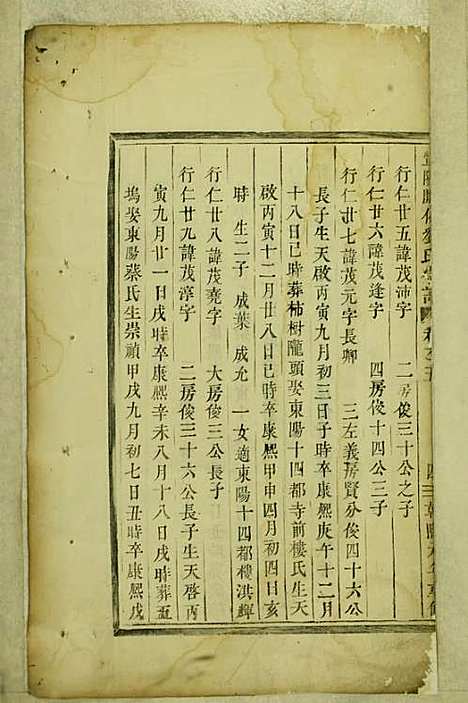 劉氏宗譜 卷之五
行仁廿五諱茂沛字 二房俊三十公之子
行仁廿六諱茂逢字 四房俊十四公三子
行仁廿七諱茂元字長卿 三左義房賢分俊四十六公
長子生天啟丙寅九月初三日子時卒康熙庚午十二月
十八日巳時葬柿樹隴頭娶東陽十四都寺前樓氏生天
啟丙寅十二月廿八日巳時卒康熙甲申四月初四日亥
時 生二子 成葉 成允 一女適東陽十四都樓洪
行仁廿八諱茂堯字 大房俊三公長子
行仁廿九諱茂淳字 二房俊三十六公長子生天啓丙
寅九月廿一日戌時卒康熙辛未八月十八日戌時葬
塢娶東陽蔡氏生崇禎甲戌九月初七日丑時卒康熙戊